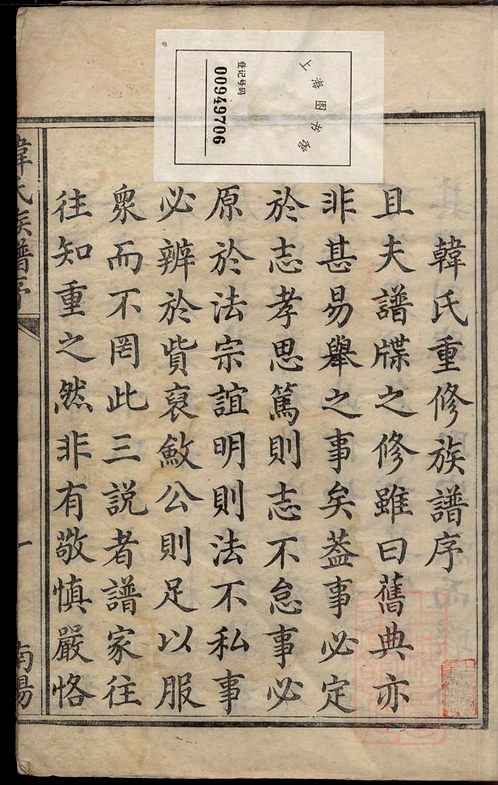 上海图书馆
登记号码
00949706
韓氏重修族譜序
且夫譜牒之修雖曰舊典亦
非甚易舉之事矣葢事必定
於志孝思篤則志不怠事必
原於法宗誼明則法不私事
必辨於貲裒斂公則足以服
衆而不罔此三説者譜家往
往知重之然非有敬慎嚴恪
韓氏族譜序
一
南陽